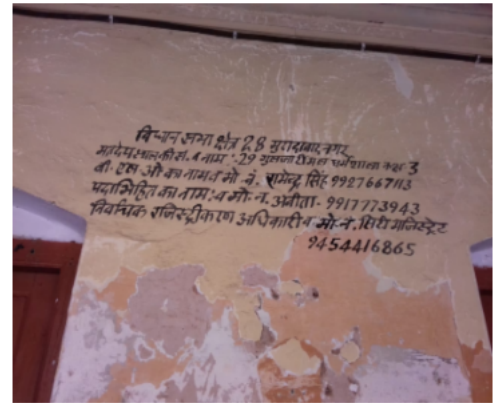 विधान सभा क्षेत्र 28 मुरादाबाद नगर
मतदेय स्थल की सं. व नाम :-29 गुलजारीमल धर्मशाला कक्ष 3
बी. एल. ओ का नाम व मो. नं. रामेन्द्र सिंह 9927667113
पदाभिहित का नाम: व मो. न. अनीता- 9917773943
निर्वाचक रजिस्ट्रीकरण अधिकारी व मो. नं. सिटी मजिस्ट्रेट
9454416865